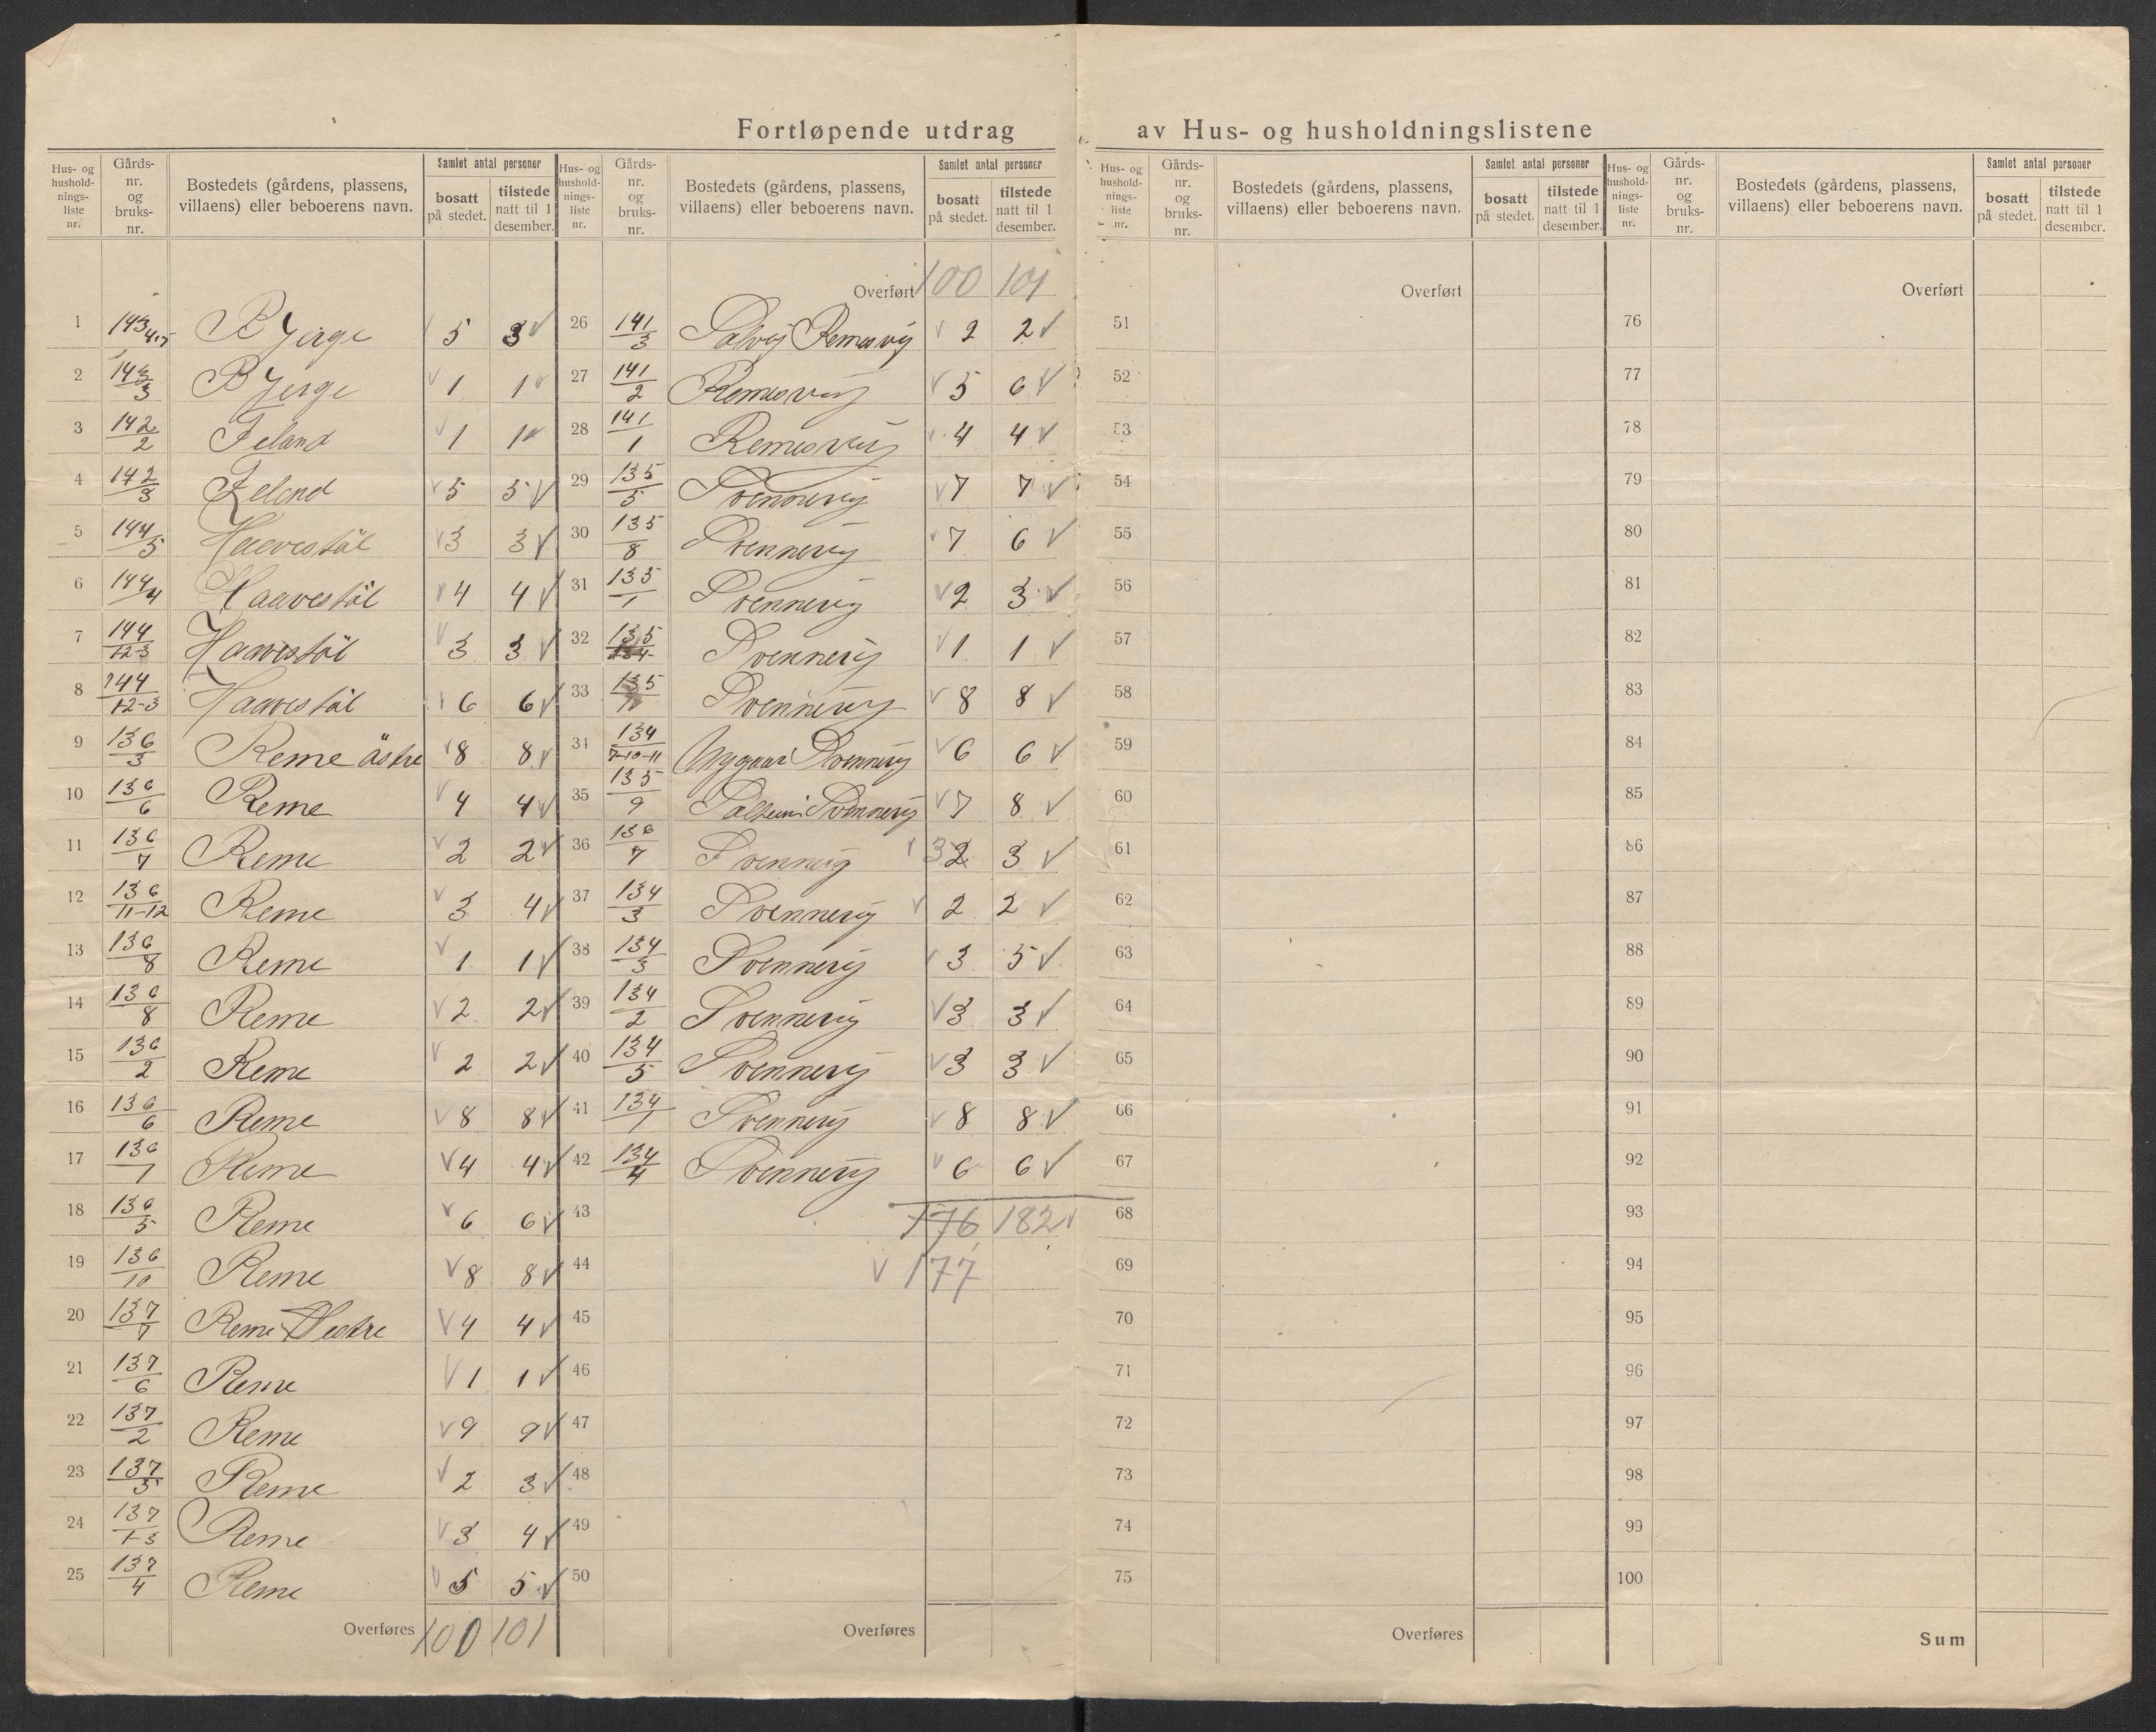 Fortløpende utdrag av Hus- og husholdningslistene
Hus- og hushold-nings-liste nr. Gårds-nr. og bruks-nr. Bostedets (gårdens, plassens, villaens) eller beboerens navn. Samlet antal personer bosatt på stedet. tilstede natt til 1 desember.
Hus- og hushold-nings-liste nr. Gårds-nr. og bruks-nr. Bostedets (gårdens, plassens, villaens) eller beboerens navn. Samlet antal personer bosatt på stedet. tilstede natt til 1 desember.
Hus- og hushold-nings-liste nr. Gårds-nr. og bruks-nr. Bostedets (gårdens, plassens, villaens) eller beboerens navn. Samlet antal personer bosatt på stedet. tilstede natt til 1 desember.
Hus- og hushold-nings-liste nr. Gårds-nr. og bruks-nr. Bostedets (gårdens, plassens, villaens) eller beboerens navn. Samlet antal personer bosatt på stedet. tilstede natt til 1 desember.
1 143/4,5 Bjerge 5 3
2 143/3 Bjerge 1 1
3 142/2 Jeland 1 1
4 142/3 Jeland 5 5
5 144/5 Haavestöl 3 3
6 144/4 Haavestöl 4 4
7 144/12-3 Haavestöl 3 3
8 144/12-3 Haavestöl 6 6
9 136/3 Reme östre 8 8
10 136/6 Reme 4 4
11 136/7 Reme 2 2
12 136/11-12 Reme 3 4
13 136/8 Reme 1 1
14 136/8 Reme 2 2
15 136/2 Reme 2 2
16 136/6 Reme 8 8
17 136/1 Reme 4 4
18 136/5 Reme 6 6
19 136/10 Reme 8 8
20 137/7 Reme Vestre 4 4
21 137/6 Reme 1 1
22 137/2 Reme 9 9
23 137/5 Reme 2 3
24 137/1-3 Reme 3 4
25 137/4 Reme 5 5
Overføres 100 101
Overført 100 101
26 141/3 Solvig Remesvig 2 2
27 141/2 Remesvig 5 6
28 141/1 Remesvig 4 4
29 135/5 Svennevig 7 7
30 135/8 Svennevig 7 6
31 135/1 Svennevig 2 3
32 135 Svennevig 1 1
33 135 Svennevig 8 8
34 134/7-10-11 Nygaar Svennevig 6 6
35 135/9 Solheim Svennevig 7 8
36 136/7 Svennevig 3 2 3
37 134/3 Svennevig 2 2
38 134/3 Svennevig 3 5
39 134/2 Svennevig 3 3
40 134/5 Svennevig 3 3
41 134/1 Svennevig 8 8
42 134/4 Svennevig 6 6
43 176 182
44 177
45
46
47
48
49
50
Overføres
Overført
51
52
53
54
55
56
57
58
59
60
61
62
63
64
65
66
67
68
69
70
71
72
73
74
75
Overføres
Overført
76
77
78
79
80
81
82
83
84
85
86
87
88
89
90
91
92
93
94
95
96
97
98
99
100
Sum